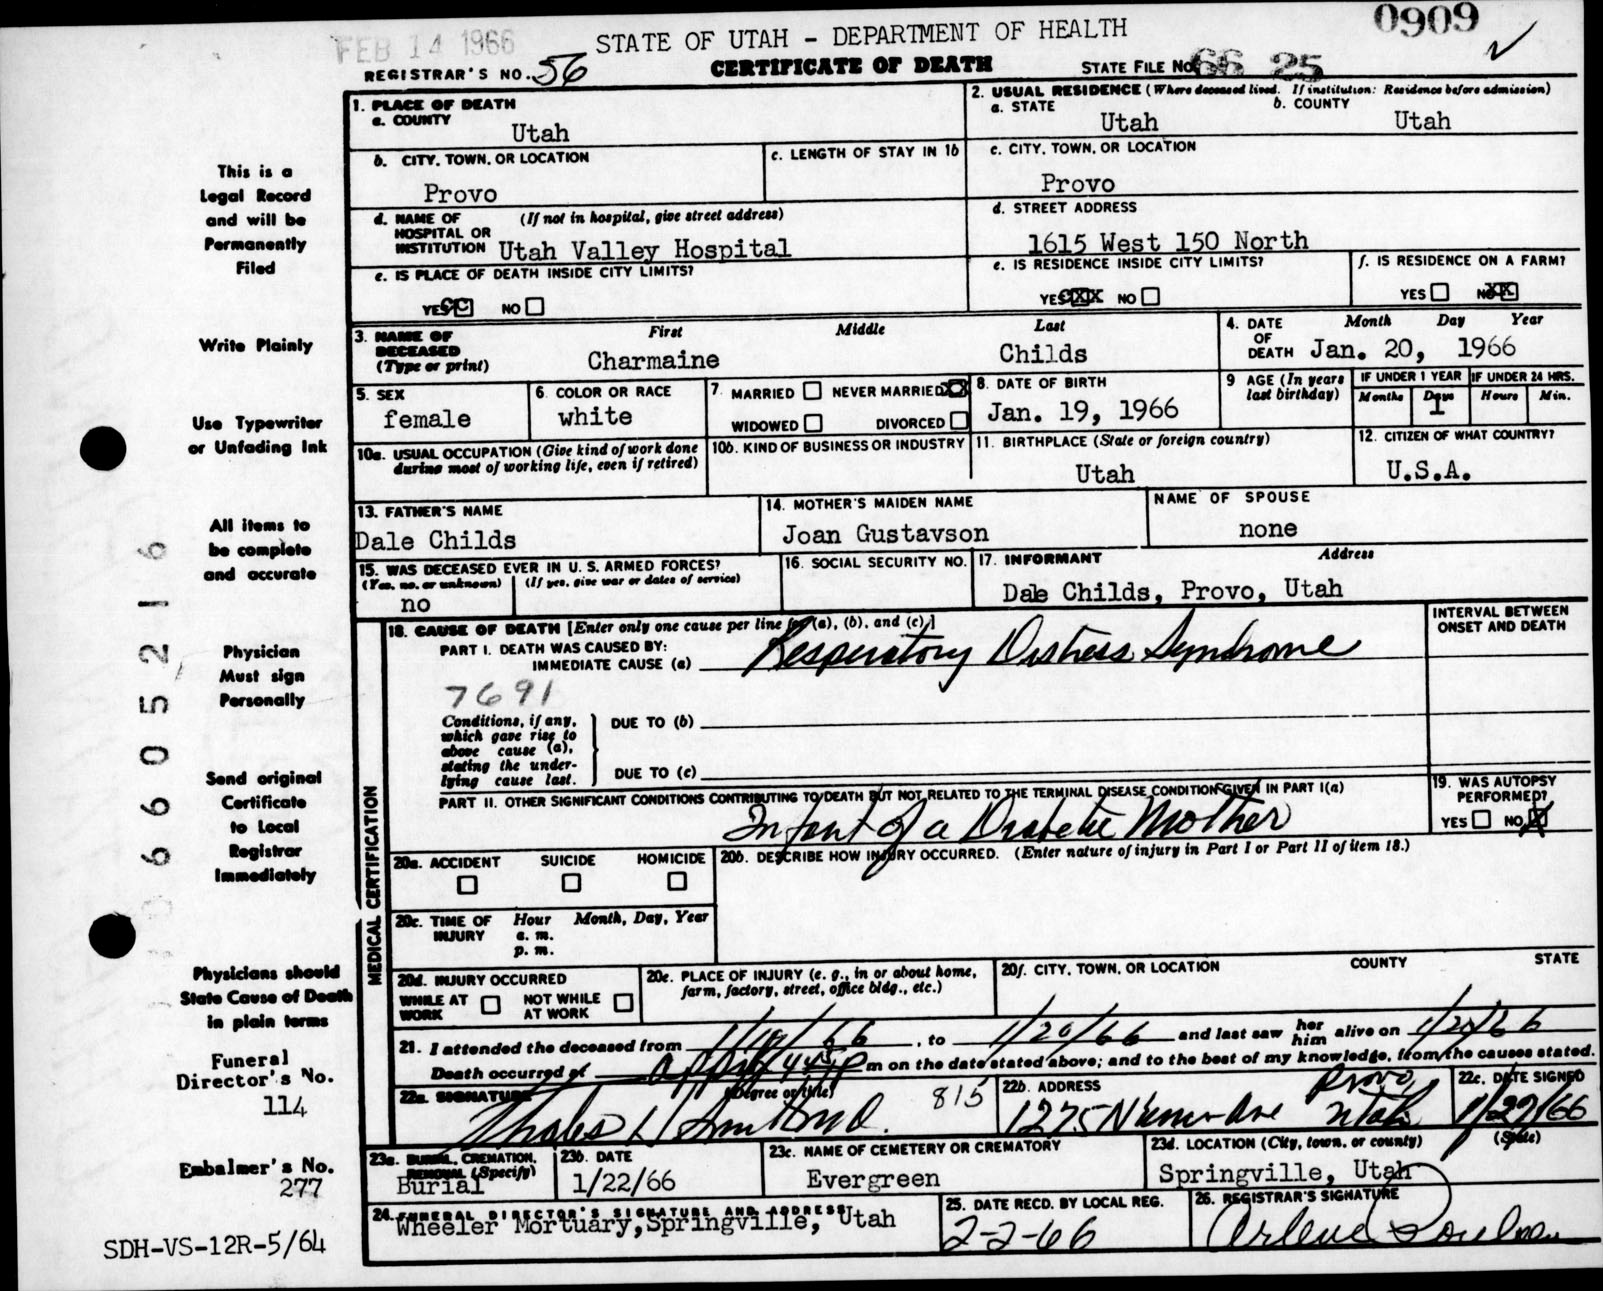 FEB 14 1966
STATE OF UTAH - DEPARTMENT OF HEALTH
0909
REGISTRAR'S NO. 56
CERTIFICATE OF DEATH
STATE FILE NO. 66 25
1. PLACE OF DEATH
a. COUNTY
Utah
2. USUAL RESIDENCE (Where deceased lived. If institution: Residence before admission)
a. STATE
Utah
b. COUNTY
Utah
b. CITY, TOWN, OR LOCATION
Provo
c. LENGTH OF STAY IN 1b
c. CITY, TOWN, OR LOCATION
Provo
d. NAME OF HOSPITAL OR INSTITUTION
(If not in hospital, give street address)
Utah Valley Hospital
d. STREET ADDRESS
1615 West 150 North
e. IS PLACE OF DEATH INSIDE CITY LIMITS?
YES NO
e. IS RESIDENCE INSIDE CITY LIMITS?
YES NO
f. IS RESIDENCE ON A FARM?
YES NO
3. NAME OF DECEASED (Type or print)
First Middle Last
Charmaine Childs
4. DATE OF DEATH
Month Day Year
Jan. 20, 1966
5. SEX
female
6. COLOR OR RACE
white
7. MARRIED NEVER MARRIED
WIDOWED DIVORCED
8. DATE OF BIRTH
Jan. 19, 1966
9 AGE (In years last birthday)
IF UNDER 1 YEAR
Months Days
1
IF UNDER 24 HRS.
Hours Min.
10a. USUAL OCCUPATION (Give kind of work done during most of working life, even if retired)
10b. KIND OF BUSINESS OR INDUSTRY
11. BIRTHPLACE (State or foreign country)
Utah
12. CITIZEN OF WHAT COUNTRY?
U.S.A.
13. FATHER'S NAME
Dale Childs
14. MOTHER'S MAIDEN NAME
Joan Gustavson
NAME OF SPOUSE
none
15. WAS DECEASED EVER IN U. S. ARMED FORCES?
(Yes, no, or unknown) (If yes, give war or dates of service)
no
16. SOCIAL SECURITY NO.
17. INFORMANT Address
Dale Childs, Provo, Utah
MEDICAL CERTIFICATION
18. CAUSE OF DEATH [Enter only one cause per line for (a), (b), and (c).]
INTERVAL BETWEEN ONSET AND DEATH
PART I. DEATH WAS CAUSED BY:
IMMEDIATE CAUSE (a) Respiratory Distress Syndrome
7691
Conditions, if any, which gave rise to above cause (a), stating the underlying cause last.
DUE TO (b)
DUE TO (c)
PART II. OTHER SIGNIFICANT CONDITIONS CONTRIBUTING TO DEATH BUT NOT RELATED TO THE TERMINAL DISEASE CONDITION GIVEN IN PART I(a)
Infant of a Diabetic Mother
19. WAS AUTOPSY PERFORMED?
YES NO
20a. ACCIDENT SUICIDE HOMICIDE
20b. DESCRIBE HOW INJURY OCCURRED. (Enter nature of injury in Part I or Part II of item 18.)
20c. TIME OF INJURY
Hour Month, Day, Year
a. m.
p. m.
20d. INJURY OCCURRED
WHILE AT WORK NOT WHILE AT WORK
20e. PLACE OF INJURY (e. g., in or about home, farm, factory, street, office bldg., etc.)
20f. CITY, TOWN, OR LOCATION COUNTY STATE
21. I attended the deceased from 1/19/66, to 1/20/66 and last saw her him alive on 1/20/66
Death occurred at m on the date stated above; and to the best of my knowledge, from the causes stated.
22a. SIGNATURE (Degree or title)
815
22b. ADDRESS
Provo
Utah
22c. DATE SIGNED
23a. BURIAL, CREMATION, REMOVAL (Specify)
Burial
23b. DATE
1/22/66
23c. NAME OF CEMETERY OR CREMATORY
Evergreen
23d. LOCATION (City, town, or county) (State)
Springville, Utah
24. FUNERAL DIRECTOR'S SIGNATURE AND ADDRESS
Wheeler Mortuary, Springville, Utah
25. DATE RECD. BY LOCAL REG.
2-2-66
26. REGISTRAR'S SIGNATURE
Arlene
This is a
Legal Record
and will be
Permanently
Filed
Write Plainly
Use Typewriter
or Unfading Ink
All items to
be complete
and accurate
Physician
Must sign
Personally
Send original
Certificate
to Local
Registrar
Immediately
Physicians should
State Cause of Death
in plain terms
Funeral
Director's No.
114
Embalmer's No.
277
SDH-VS-12R-5/64
66 0 5 2 1 6